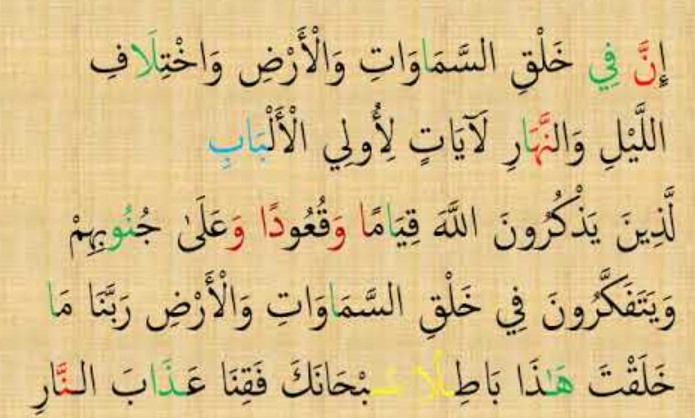 إِنَّ فِي خَلْقِ السَّمَاوَاتِ وَالْأَرْضِ وَاخْتِلَافِ
اللَّيْلِ وَالنَّهَارِ لَآيَاتٍ لِأُولِي الْأَلْبَابِ
لَّذِينَ يَذْكُرُونَ اللَّهَ قِيَامًا وَقُعُودًا وَعَلَىٰ جُنُوبِهِمْ
وَيَتَفَكَّرُونَ فِي خَلْقِ السَّمَاوَاتِ وَالْأَرْضِ رَبَّنَا مَا
خَلَقْتَ هَٰذَا بَاطِلًا سُبْحَانَكَ فَقِنَا عَذَابَ النَّارِ